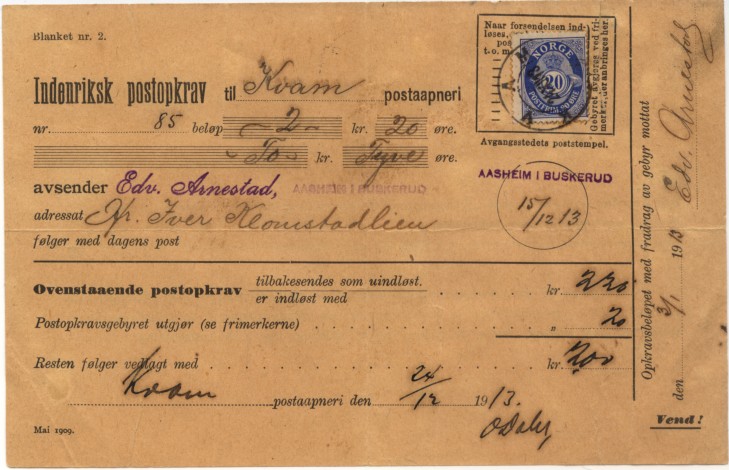 Blanket nr. 2.
Naar forsendelsen ind-
løses,
po
t.o.m
Gebyret avgjøres ved fri-
merker, der anbringes her.
NORGE
20
POSTFRIM. 20 ØRE
Avgangsstedets poststempel.
Indenriksk postopkrav til Kvam postaapneri
nr. 85 beløp 2 kr. 20 øre.
To kr. Tyve øre.
avsender Edv. Arnestad, AASHEIM I BUSKERUD
AASHEIM I BUSKERUD
15/12 13
adressat Hr. Iver Klomstadlien
følger med dagens post
Ovenstaaende postopkrav tilbakesendes som uindløst.
er indløst med kr. 220
Postopkravsgebyret utgjør (se frimerkerne) „ 20
Resten følger vedlagt med kr. 200
Kvam postaapneri den 24/12 1913.
Mai 1909.
Vend!
Opkravsbeløpet med fradrag av gebyr mottat
den 3/1 1913 Edv. Arnestad